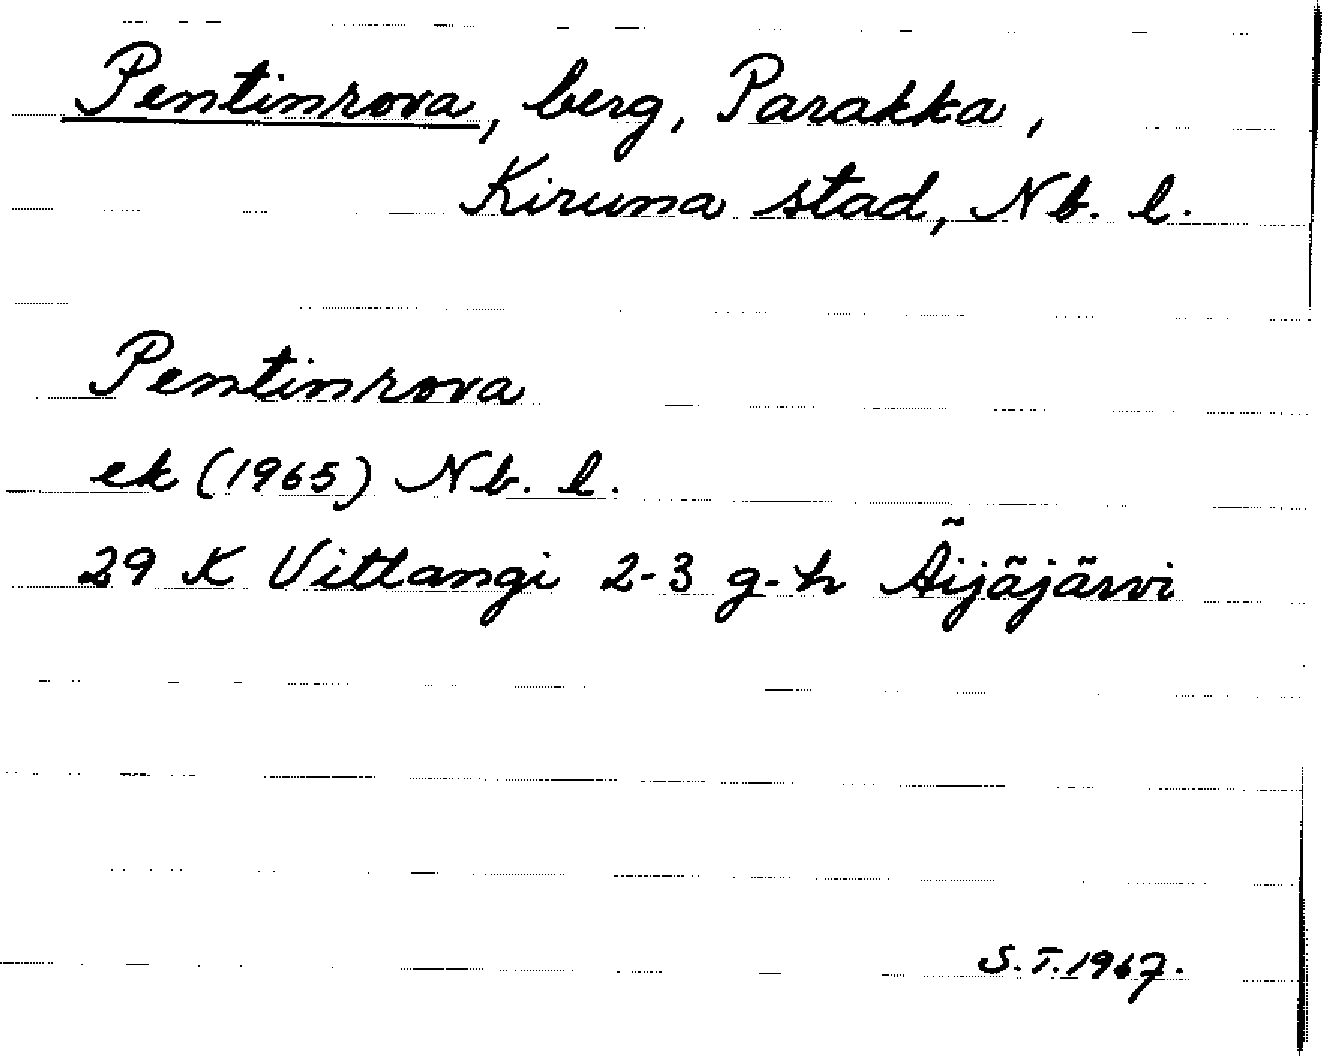 Pentinrova, berg, Parakka,
Kiruna stad, Nb. l.
Pentinrova
ek (1965) Nb. l.
29 K Vittangi 2-3 g-h Äijäjärvi
S.T. 1967.